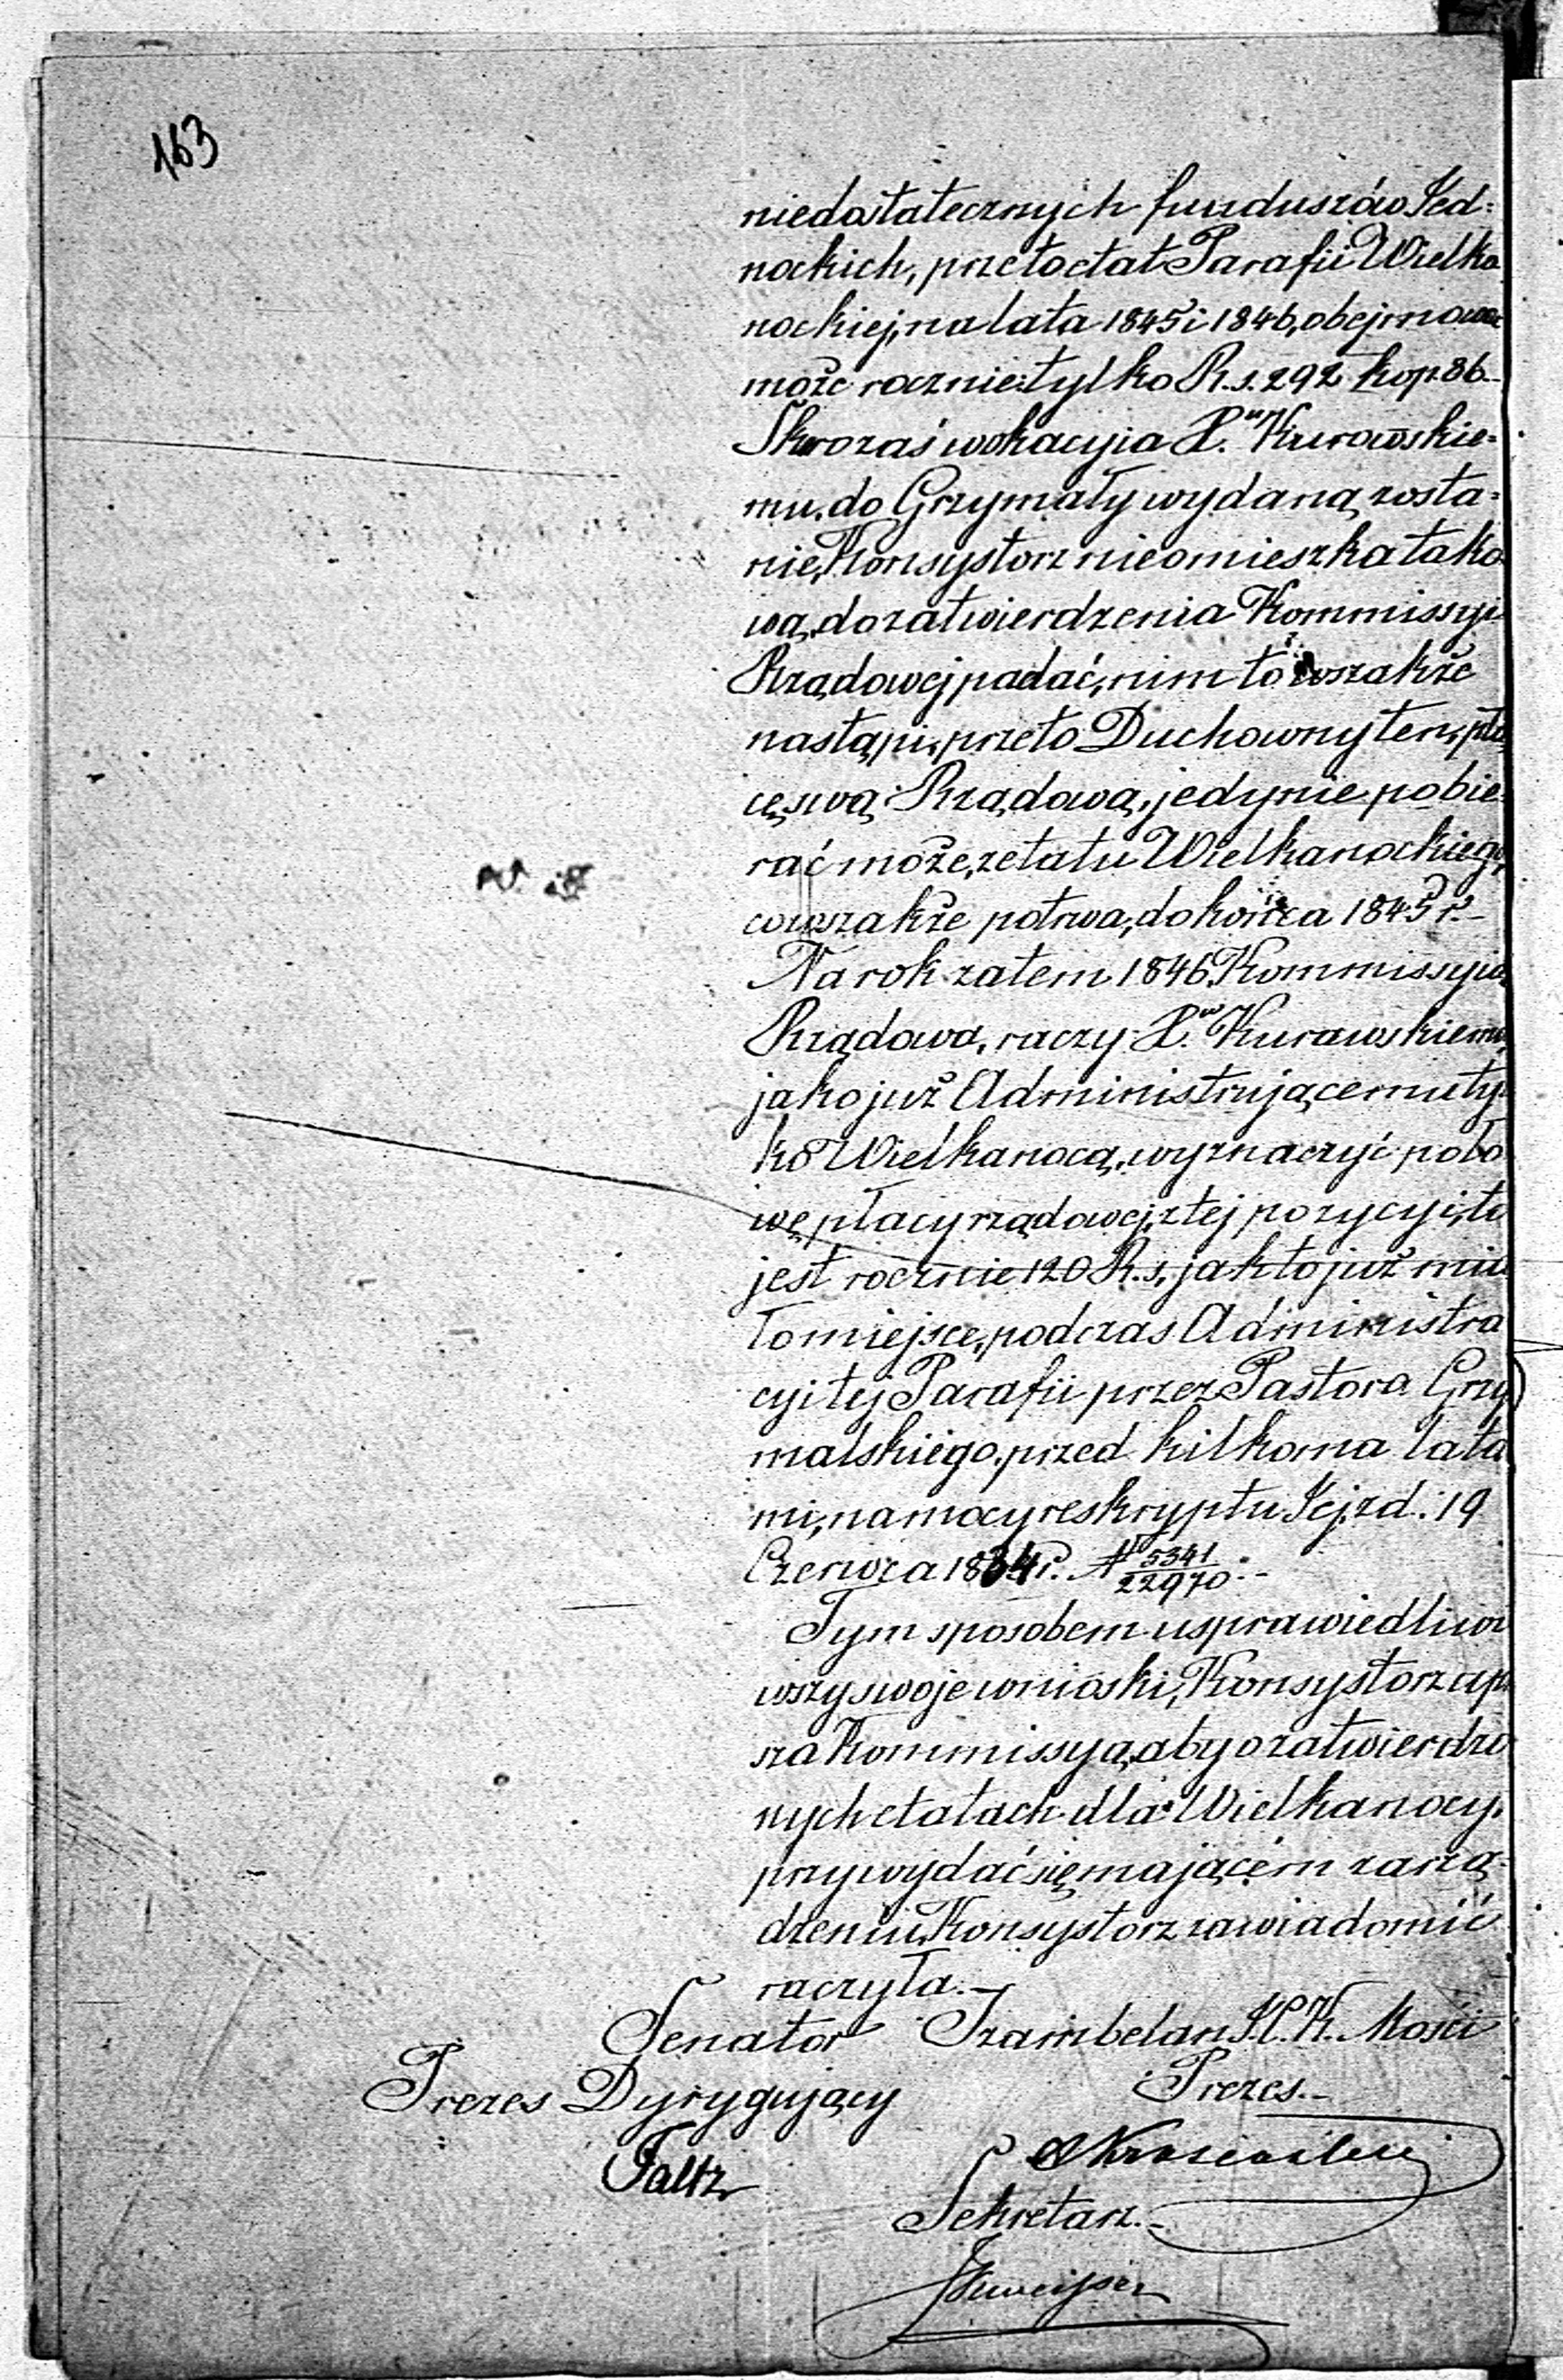 163
niedostatecznych funduszów Jed=
nockich, przeto etat Parafii Wielka
nockiej, na lata 1845 i 1846, obejmować
może rocznie tylko R. s. 292 kop. 86.-
Skoro zaś wokacyja X. Kurowskie=
mu, do Grzymały wydaną zosta=
nie, Konsystorz nieomieszka tako
wą, do zatwierdzenia Kommissyi
Rządowej podać, nim to wszakże
nastąpi, przeto Duchowny ten, pła
cę swą Rządową, jedynie pobie=
rać może, z etatu Wielkanockiego,
co wszakże potrwa, do końca 1845 r.-
Na rok zatem 1846, Kommissyja
Rządowa, raczy X. Kurawskiemu,
jako już Administrującemu tyl
ko Wielkanocą, wyznaczyć poło
wę płacy rządowej, z tej pozycyi, to
jest rocznie 120 R. s, jak to już mia
ło miejsce, podczas Administra
cyi tej Parafii przez Pastora Grzy
malskiego, przed kilkoma lata
mi, na mocy reskryptu Jej, z d. 19
Czerwca 1834 r. N 5341/22970.-
Tym sposobem usprawiedliwi
wszy swoje wnioski, Konsystorz upra
sza Kommissyą, aby o zatwierdzo
nych etatach dla Wielkanocy,
przy wydać się mającém zarzą=
dzeniu, Konsystorz zawiadomić
raczyła.-
Senator Szambelan J. C. K. Mości
Prezes Dyrygujący Prezes.-
Faltz
Sekretarz.-